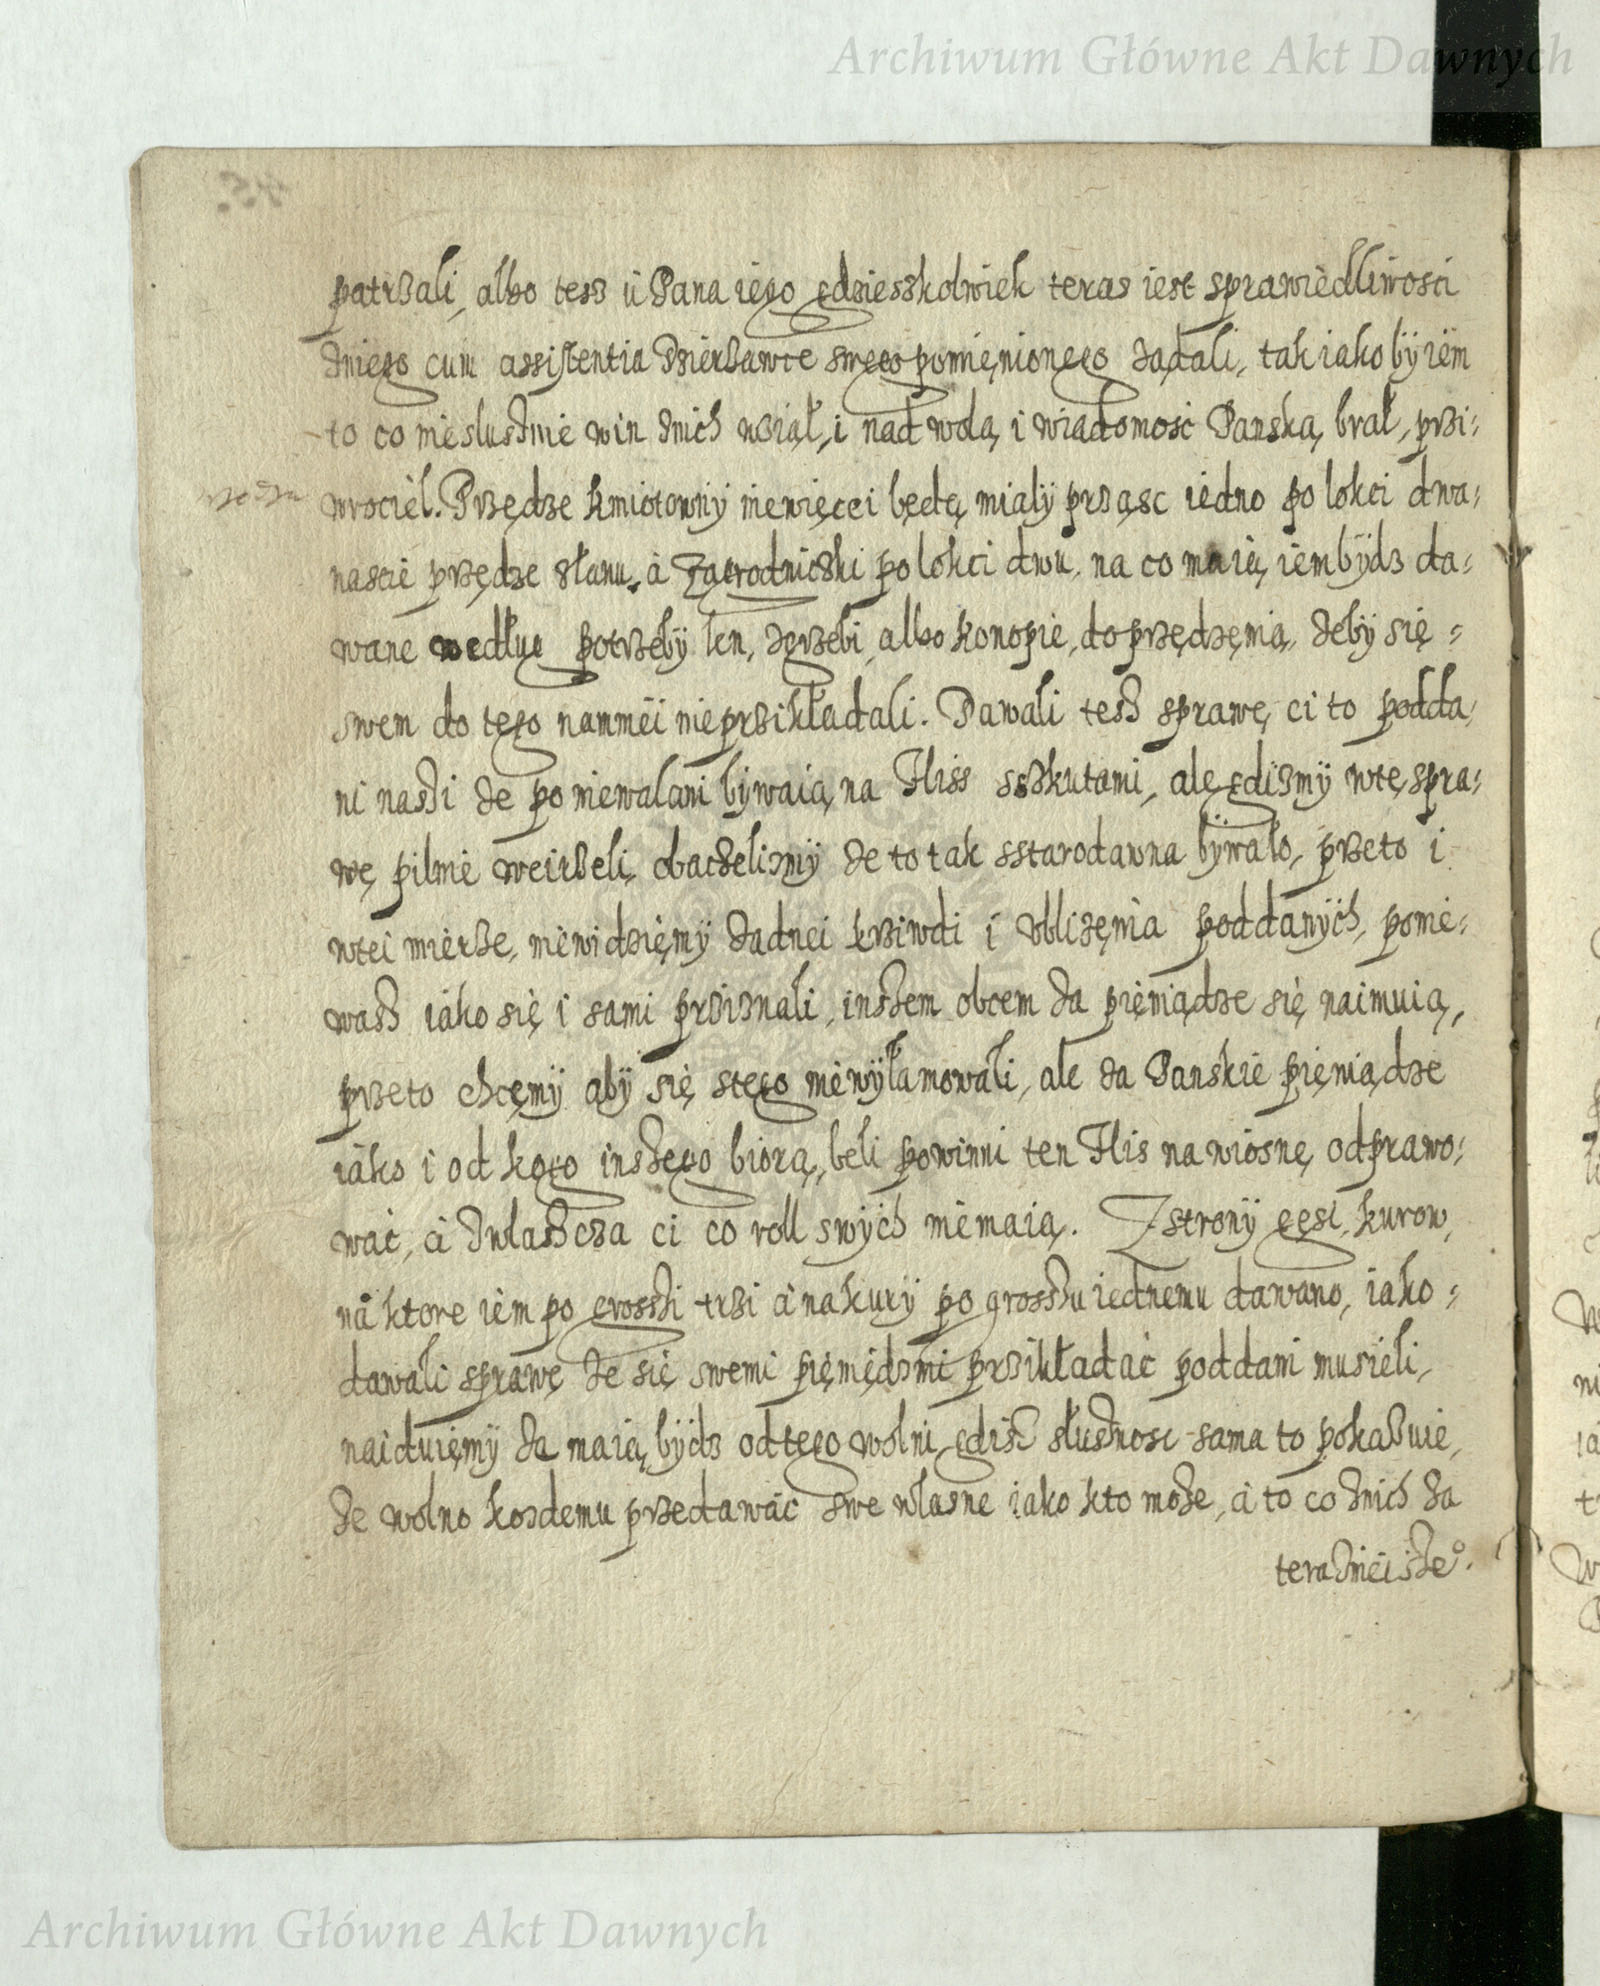 Archiwum Główne Akt Dawnych
patrzali, albo tesz u Pana iego gdzieszkolwiek teras iest sprawiedliwosci
zniego cum assistentia Dzierzawce swego pomięnionego ządali, tak iako by iem
to co niesluznie win znich wziął, i nad wolą i wiadomosc Panską brał, przi-
wrociel. Przędze kmiotowny niewięcei będą mialy prząsc iedno po lokci dwa-
nascie przędze stanu, à Zagrodniczki po lokci dwu, na co maią iem bydz da-
wane wedlug potrzeby len, zgrzebi, albo konopie, do przędzęnia, zeby się
swem do tego namnei nie przikładali. Dawali tesz sprawę ci to podda-
ni naszi ze poniewalani bywaią na Fliss sszkutami, ale gdizmy wtę spra-
wę pilnie weirzeli, obaczelizmy ze to tak sstarodawna bywało, przeto i
wtei mierze, niewidzięmy zadnei krziwdi i ublizęnia poddanych, ponie-
wasz iako się i sami prziznali, inszem obcem za pięniądze się naimuią,
przeto chcęmy aby się stego niewyłamowali, ale za Panskie pięniądze
iako i od kogo inszego biorą, beli powinni ten Flis na wiosnę odprawo-
wać, à zwlaszcza ci co roll swych niemaią. Zstrony gęsi, kurow,
na ktore iem po groszi trzi à na kury po grosszu iednemu dawano, iako
dawali sprawę ze się swemi pięniędzmi przikładać poddani musieli,
naiduięmy za maią bydz odtego wolni, gdisz słusznosc sama to pokazuie,
ze wolno kozdemu przedawác swe wlasne iako kto może, à to co znich za
teraznieisze°.
Archiwum Główne Akt Dawnych